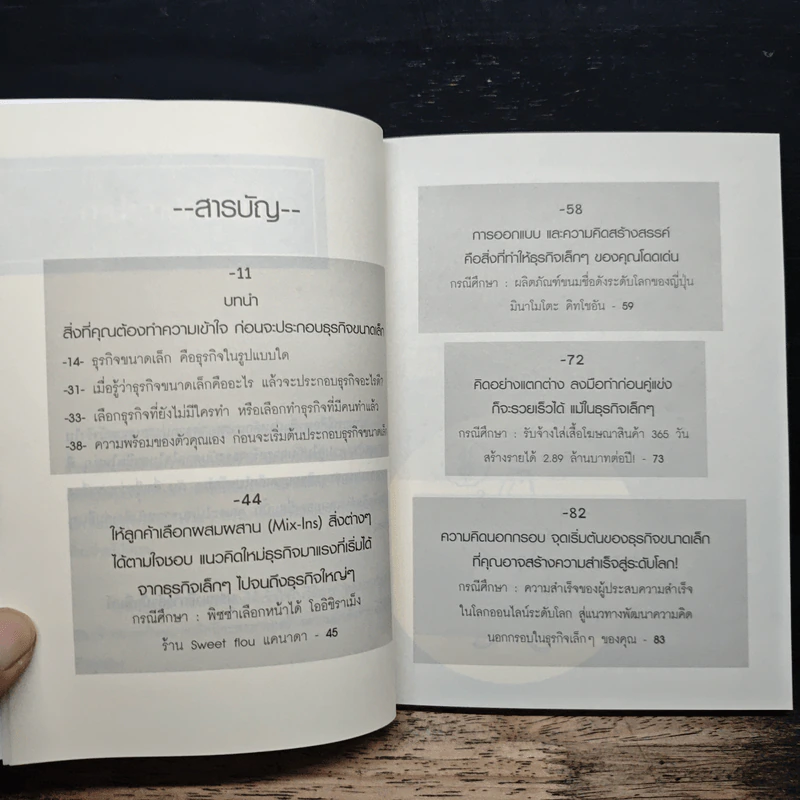 --สารบัญ--
-11
บทนำ
สิ่งที่คุณต้องทำความเข้าใจ ก่อนจะประกอบธุรกิจขนาดเล็ก
-14- ธุรกิจขนาดเล็ก คือธุรกิจในรูปแบบใด
-31- เมื่อรู้ว่าธุรกิจขนาดเล็กคืออะไร แล้วจะประกอบธุรกิจอะไรดี?
-33- เลือกธุรกิจที่ยังไม่มีใครทำ หรือเลือกทำธุรกิจที่มีคนทำแล้ว
-38- ความพร้อมของตัวคุณเอง ก่อนจะเริ่มต้นประกอบธุรกิจขนาดเล็ก
-44
ให้ลูกค้าเลือกผสมผสาน (Mix-Ins) สิ่งต่างๆ
ได้ตามใจชอบ แนวคิดใหม่ธุรกิจมาแรงที่เริ่มได้
จากธุรกิจเล็กๆ ไปจนถึงธุรกิจใหญ่ๆ
กรณีศึกษา : พิซซ่าเลือกหน้าได้ โออิชิราเม็ง
ร้าน Sweet flou แคนาดา - 45
-58
การออกแบบ และความคิดสร้างสรรค์
คือสิ่งที่ทำให้ธุรกิจเล็กๆ ของคุณโดดเด่น
กรณีศึกษา : ผลิตภัณฑ์ขนมชื่อดังระดับโลกของญี่ปุ่น
มินาโมโตะ คิทโชอัน - 59
-72
คิดอย่างแตกต่าง ลงมือทำก่อนคู่แข่ง
ก็จะรวยเร็วได้ แม้ในธุรกิจเล็กๆ
กรณีศึกษา : รับจ้างใส่เสื้อโฆษณาสินค้า 365 วัน
สร้างรายได้ 2.89 ล้านบาทต่อปี! - 73
-82
ความคิดนอกกรอบ จุดเริ่มต้นของธุรกิจขนาดเล็ก
ที่คุณอาจสร้างความสำเร็จสู่ระดับโลก!
กรณีศึกษา : ความสำเร็จของผู้ประสบความสำเร็จ
ในโลกออนไลน์ระดับโลก สู่แนวทางพัฒนาความคิด
นอกกรอบในธุรกิจเล็กๆ ของคุณ - 83